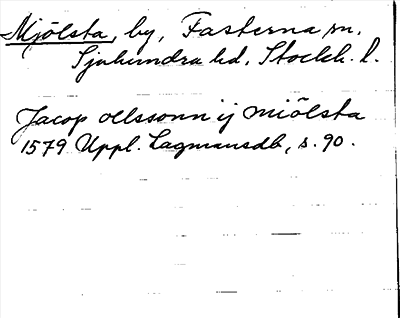 Mjölsta, by, Fasterna sn.
Sjuhundra hd. Stockh. l.
Jacop ollssonn ij miölsta
1579 Uppl. Lagmansdb, s. 90.